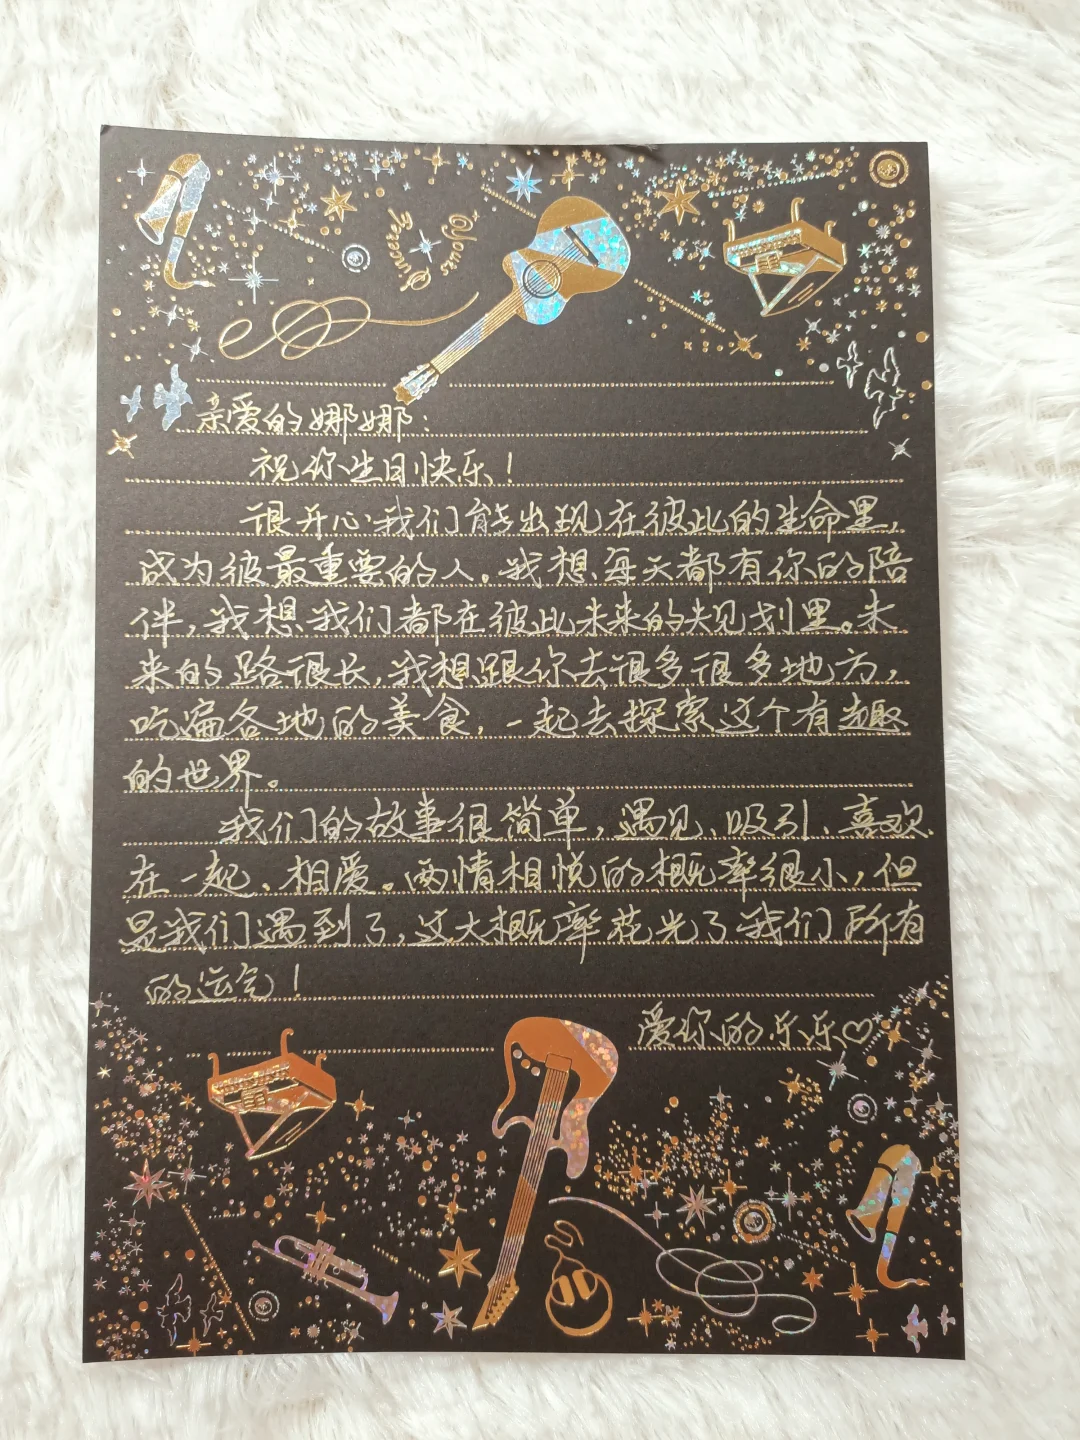 Yours
Queeey
亲爱的娜娜：
祝你生日快乐！
很开心我们能出现在彼此的生命里，
成为彼最重要的人。我想每天都有你的陪
伴，我想我们都在彼此未来的规划里。未
来的路很长，我想跟你去很多很多地方，
吃遍各地的美食，一起去探索这个有趣
的世界。
我们的故事很简单，遇见、吸引、喜欢、
在一起、相爱。两情相悦的概率很小，但
是我们遇到了，这大概率花光了我们所有
的运气！
爱你的乐乐♡